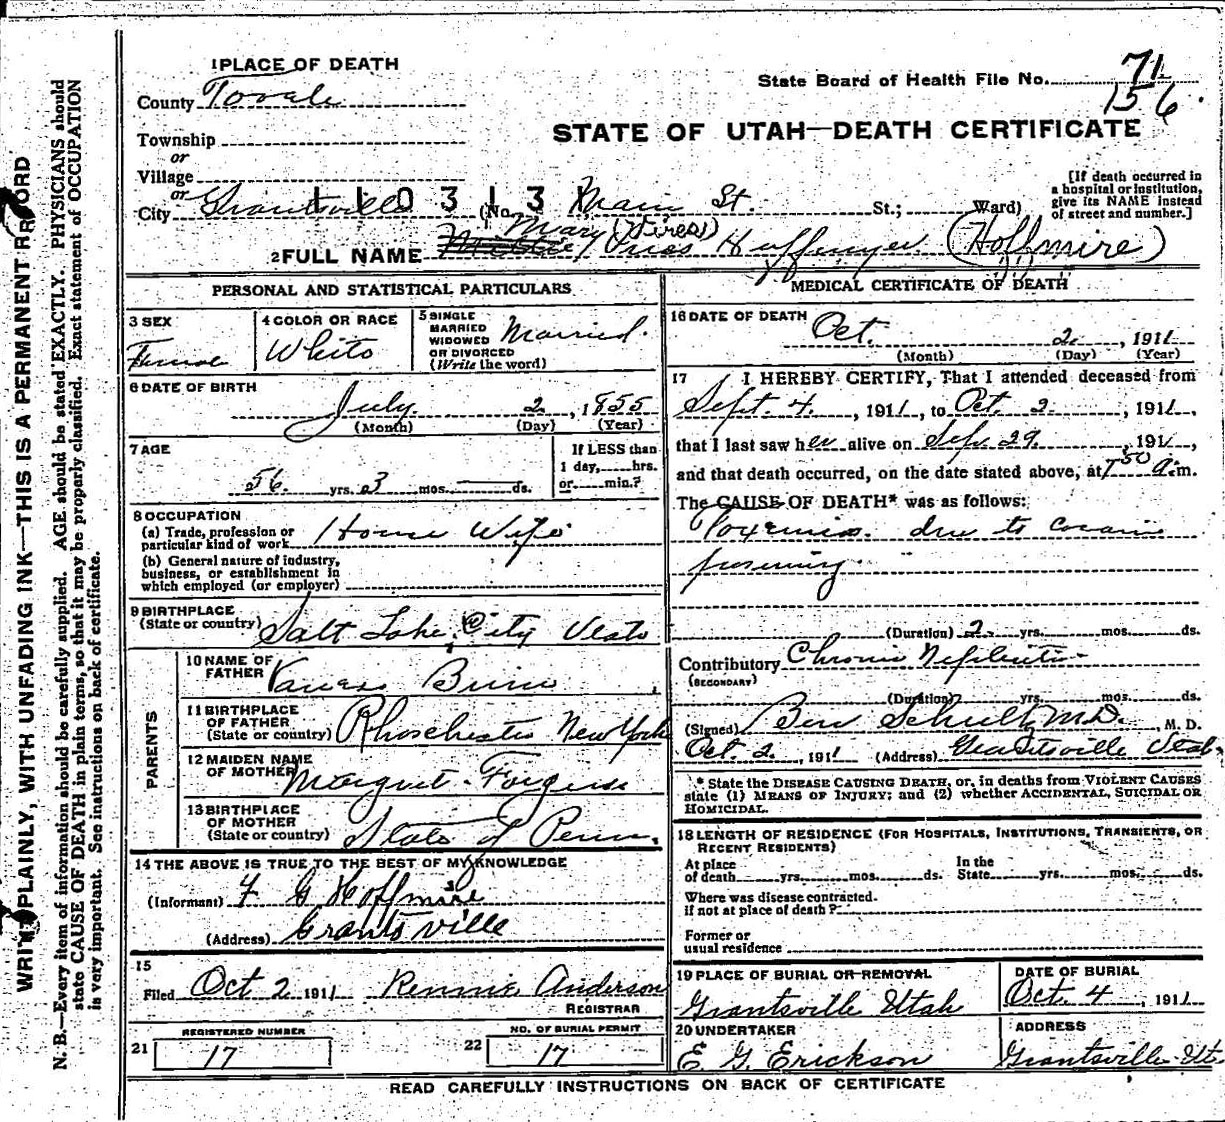 1 PLACE OF DEATH
State Board of Health File No. 71
156
County Tooele
STATE OF UTAH—DEATH CERTIFICATE
Township
or
Village
or
City Grantsville
110313
(No. Main St. St.; Ward)
[If death occurred in
a hospital or institution,
give its NAME instead
of street and number.]
2 FULL NAME Mary (Vires) Vries Huffmyer (Hoffmire)
PERSONAL AND STATISTICAL PARTICULARS
3 SEX
Female
4 COLOR OR RACE
White
5 SINGLE
MARRIED
WIDOWED
OR DIVORCED
(Write the word)
Married.
6 DATE OF BIRTH
July 2, 1855
(Month) (Day) (Year)
7 AGE
56 yrs. 3 mos. ds.
If LESS than
1 day, hrs.
or min.?
8 OCCUPATION
(a) Trade, profession or
particular kind of work House Wife
(b) General nature of industry,
business, or establishment in
which employed (or employer)
9 BIRTHPLACE
(State or country) Salt Lake City Utah
PARENTS
10 NAME OF
FATHER
11 BIRTHPLACE
OF FATHER
(State or country) Rhoschester New York
12 MAIDEN NAME
OF MOTHER Margret
13 BIRTHPLACE
OF MOTHER
(State or country) State of Penn.
14 THE ABOVE IS TRUE TO THE BEST OF MY KNOWLEDGE
(Informant) F G Hoffmire
(Address) Grantsville
15
Filed Oct 2 1911 Rennie Anderson
REGISTRAR
REGISTERED NUMBER
21 17
NO. OF BURIAL PERMIT
22 17
MEDICAL CERTIFICATE OF DEATH
16 DATE OF DEATH
Oct. 2, 1911
(Month) (Day) (Year)
17 I HEREBY CERTIFY, That I attended deceased from
Sept. 4, 1911, to Oct. 2, 1911,
that I last saw her alive on Sep. 29, 191 ,
and that death occurred, on the date stated above, at 7 50 a.m.
The CAUSE OF DEATH* was as follows:
Toxemia. due to
(Duration) 2 yrs. mos. ds.
Contributory Chronic Nefibritis
(SECONDARY)
(Duration) yrs. mos. ds.
(Signed) Ben Schultz M.D. M. D.
Oct 2, 1911 (Address) Grantsville Utah
* State the DISEASE CAUSING DEATH, or, in deaths from VIOLENT CAUSES
state (1) MEANS OF INJURY; and (2) whether ACCIDENTAL, SUICIDAL OR
HOMICIDAL.
18 LENGTH OF RESIDENCE (FOR HOSPITALS, INSTITUTIONS, TRANSIENTS, OR
RECENT RESIDENTS)
At place
of death yrs. mos. ds.
In the
State yrs. mos. ds.
Where was disease contracted.
if not at place of death?
Former or
usual residence
19 PLACE OF BURIAL OR REMOVAL
Grantsville Utah
DATE OF BURIAL
Oct. 4, 1911
20 UNDERTAKER
E G Erickson
ADDRESS
Grantsville Ut
READ CAREFULLY INSTRUCTIONS ON BACK OF CERTIFICATE
WRITE PLAINLY, WITH UNFADING INK—THIS IS A PERMANENT RECORD
N. B.—Every item of information should be carefully supplied. AGE should be stated EXACTLY. PHYSICIANS should
state CAUSE OF DEATH in plain terms, so that it may be properly classified. Exact statement of OCCUPATION
is very important. See instructions on back of certificate.